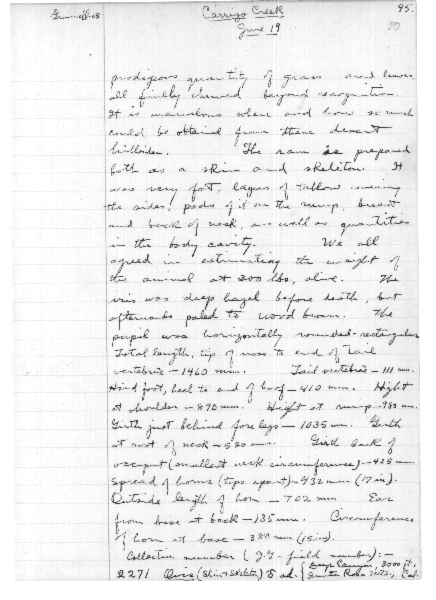 Grinnell-08
Carrizo Creek
95.
June 19
90
prodigious quantity of grass and leaves,
all finely chewed beyond recognition.
It is marvelous where and how so much
could be obtained from these desert
hillsides. The ram is prepared
both as a skin and skeleton. It
was very fat, layers of tallow covering
the sides, pads of it on the rump, breast
and back of neck, as well as quantities
in the body cavity. We all
agreed in estimating the weight of
the animal at 200 lbs, alive. The
iris was deep hazel before death, but
afterwards paled to wood brown. The
pupil was horizontally rounded-rectangular.
Total length, tip of nose to end of tail
vertebrae - 1460 mm. Tail vertebrae - 111 mm.
Hind foot, heel to end of hoof - 410 mm. Hight
at shoulder - 890 mm. Height at rump - 983 mm.
Girth just behind fore legs - 1035 mm. Girth
at root of neck - 580 mm. Girth back of
occiput (smallest neck circumference) - 425 mm.
Spread of horns (tips apart) - 432 mm (17 in).
Outside length of horn - 702 mm Ear
from base at back - 135 mm. Circumference
of horn at base - 380 mm (15 in).
Collection number (J.G. field number): -
2271 Ovis (Skin & Skeleton) ♂ ad. { Deep Canyon, 3000 ft,
Santa Rosa Mts., Cal.